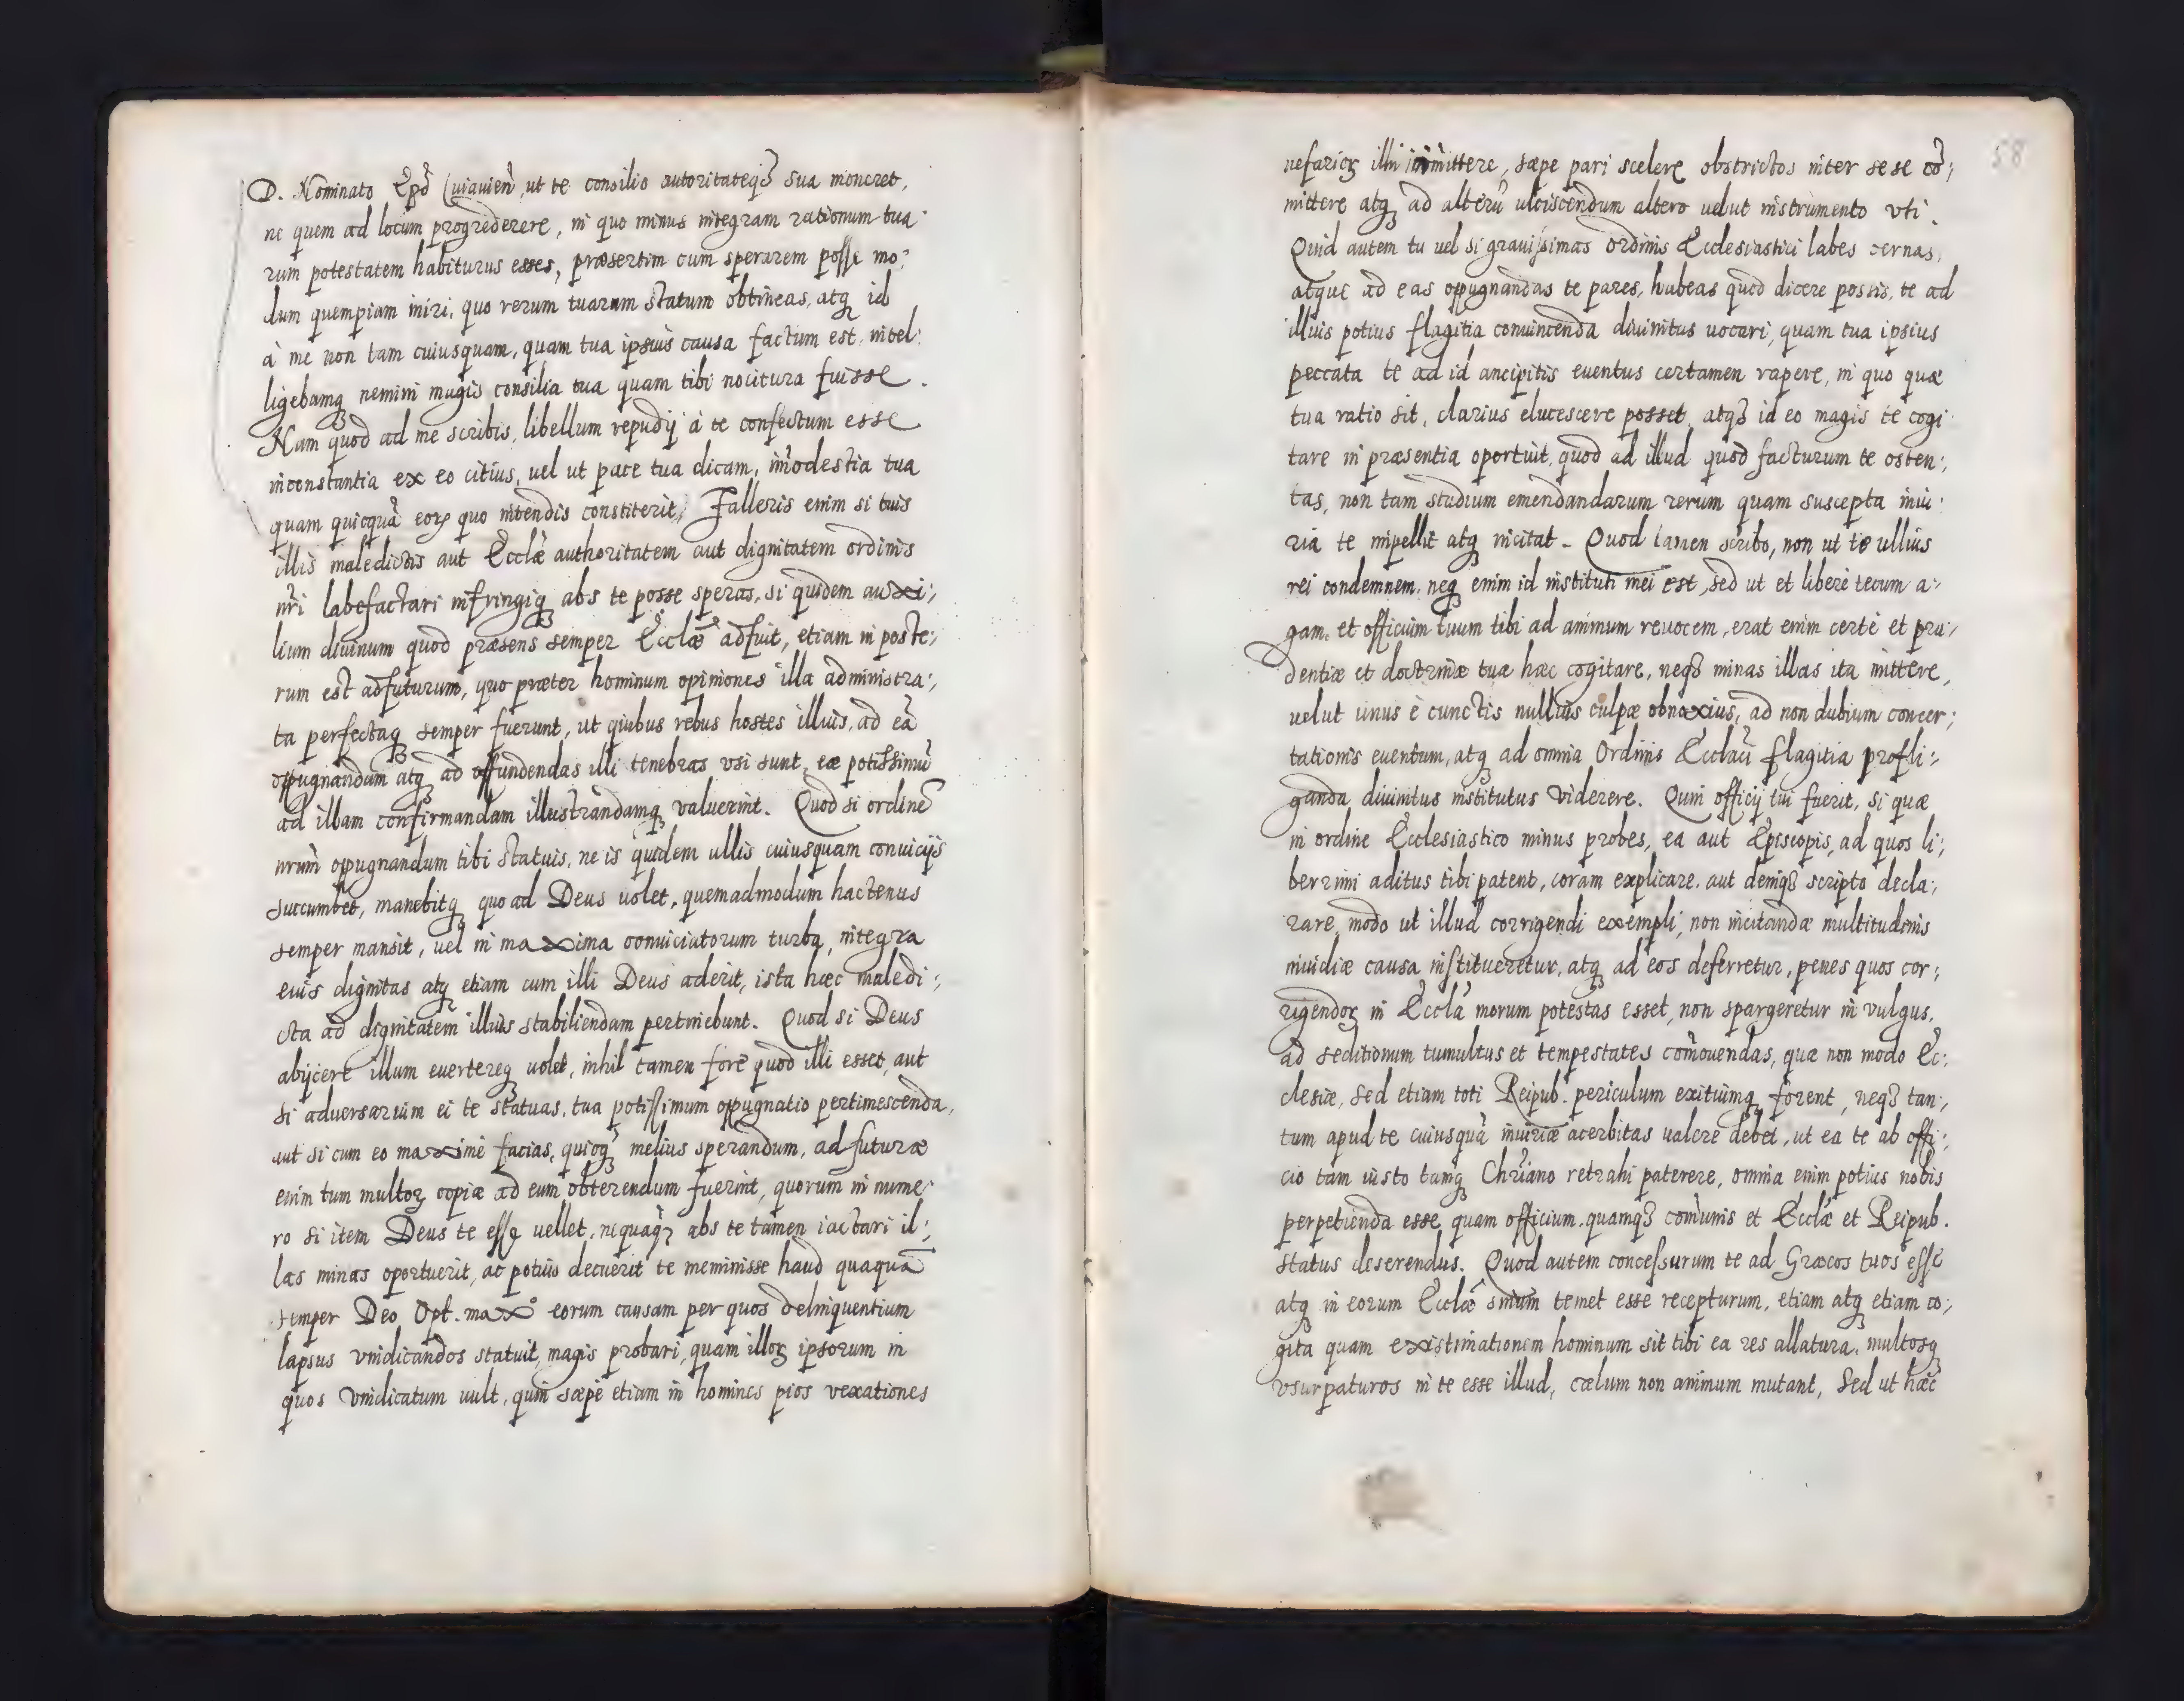 D. Nominato Ep̃o Cuiauieñ, ut te consilio autoritateqȝ sua moneret,
ne quem ad locum progrederere, in quo minus integram rationum tua:
rum potestatem habiturus esses, præsertim cum sperarem posse mo:
dum quempiam iniri, quo rerum tuarum statum obtineas, atqȝ id
à me non tam cuiusquam, quam tua ipsius causa factum est, intel:
ligebamqȝ nemini magis consilia tua quam tibi nocitura fuisse.
Nam quod ad me scribis, libellum repudij à te confectum esse
inconstantia ex eo citius, uel ut pace tua dicam, im̃odestia tua
quam quicquã eoꝝ quo intendis constiterit, Falleris enim si tuis
illis maledictis aut Eccłæ authoritatem aut dignitatem ordinis
nr̃i labefactari infringiqȝ abs te posse speras, si quidem auxi:,
lium diuinum quod præsens semper Eccłæ adfuit, etiam in poste:,
rum est adfuturum, quo præter hominum opiniones illa administra:,
ta perfectaqȝ semper fuerunt, ut quibus rebus hostes illius, ad eã
oppugnandum atqȝ ad offundendas illi tenebras vsi sunt, eæ potissimũ
ad illam confirmandam illustrandamqȝ valuerint. Quod si ordinẽ
nr̃um oppugnandum tibi statuis, ne is quidem ullis cuiusquam conuicijs
succumbet, manebitqȝ quoad Deus uolet, quemadmodum hactenus
semper mansit, uel in maxima conuiciatorum turba, integra
eius dignitas atqȝ etiam cum illi Deus aderit, ista hæc maledi:,
cta ad dignitatem illius stabiliendam pertinebunt. Quod si Deus
abijcere illum euertereqȝ uolet, nihil tamen fore quod illi esset, aut
si aduersarium ei te statuas, tua potissimum oppugnatio pertimescenda,
aut si cum eo maximè facias, quicqȝ melius sperandum, ad futuræ
enim tum multoꝝ copiæ ad eum obterendum fuerint, quorum in nume:
ro si item Deus te esse uellet, nequaqȝ abs te tamen iactari il:,
las minas oportuerit, ac potius decuerit te meminisse haud quaquã
semper Deo Opt. maxº eorum causam per quos delinquentium
lapsus vindicandos statuit, magis probari, quam illoꝝ ipsorum in
quos vindicatum uult, quin sæpe etiam in homines pios vexationes
58
nefarioꝝ illi immittere, sæpe pari scelere obstrictos inter sese cõ:,
mittere atqȝ ad alterũ ulciscendum altero uelut instrumento vti.
Quid autem tu uel si grauissimas ordinis Ecclesiastici labes cernas,
atque ad eas oppugnandas te pares, habeas quod dicere possis, te ad
illius potius flagitia conuincenda diuinitus uocari, quam tua ipsius
peccata te ad id ancipitis euentus certamen rapere, in quo quæ
tua ratio sit, clarius elucescere posset, atqȝ id eo magis te cogi:
tare in præsentia oportuit, quod ad illud quod facturum te osten:,
tas, non tam studium emendandarum rerum quam suscepta iniu:
ria te impellit atqȝ incitat. Quod tamen scribo, non ut te ullius
rei condemnem, neqȝ enim id instituti mei est, sed ut et liberè tecum a:,
gam, et officium tuum tibi ad animum reuocem, erat enim certè et pru:,
dentiæ et doctrinæ tuæ hæc cogitare, neqȝ minas illas ita mittere,
uelut unus è cunctis nullius culpæ obnoxius, ad non dubium concer:,
tationis euentum, atqȝ ad omnia Ordinis Eccłaũ flagitia profli:,
ganda diuinitus institutus viderere. Quin officij tui fuerit, si quæ
in ordine Ecclesiastico minus probes, ea aut Episcopis, ad quos li:,
berrimi aditus tibi patent, coram explicare, aut deniqȝ scripto decla:,
rare, modo ut illud corrigendi exempli, non incitandæ multitudinis
inuidiæ causa institueretur, atqȝ ad eos deferretur, penes quos cor:,
rigendoꝝ in Eccłã morum potestas esset, non spargeretur in vulgus,
ad seditionum tumultus et tempestates com̃ouendas, quæ non modo Ec:,
clesiæ, sed etiam toti Reipub. periculum exitiumqȝ forent, neqȝ tan:,
tum apud te cuiusquã iniuriæ acerbitas ualere debet, ut ea te ab offi:,
cio tam iusto tamqȝ Chr̃iano retrahi paterere, omnia enim potius nobis
perpetienda esse quam officium, quamqȝ com̃unis et Eccłæ et Reipub.
status deserendus. Quod autem concessurum te ad Græcos tuos esse
atqȝ in eorum Eccłæ sinum temet esse recepturum, etiam atqȝ etiam co:,
gita quam existimationem hominum sit tibi ea res allatura, multosqȝ
vsurpaturos in te esse illud, cælum non animum mutant, Sed ut hæc